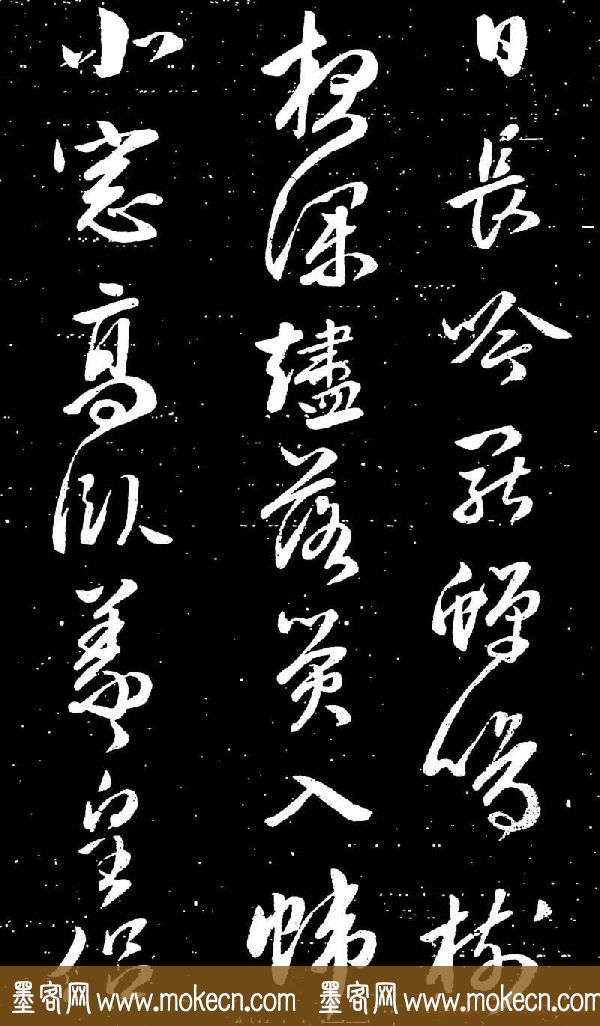 日長吟罷蟬鳴樹
夜深燼落螢入幃
北窓高臥羲皇侶
墨客网 www.mokecn.com 墨客网 www.mokecn.com